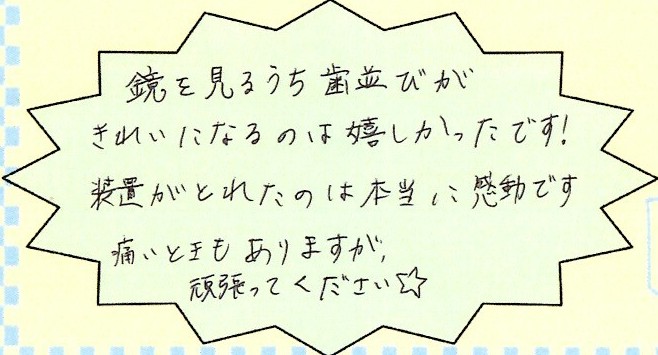 鏡を見るうち歯並びが
きれいになるのは嬉しかったです!
装置がとれたのは本当に感動です
痛いときもありますが、
頑張ってください☆